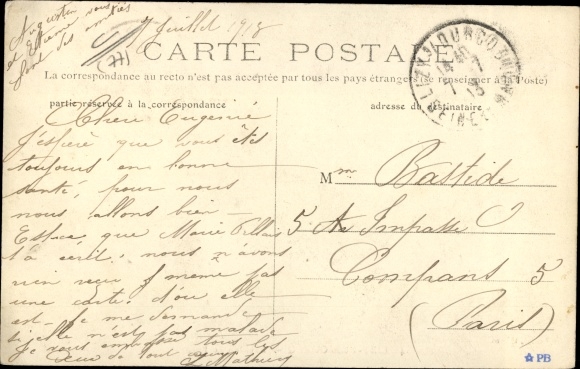 Augustin
et Etienne vous
font des amitiés
7 Juillet 1913
(77)
CARTE POSTALE
La correspondance au recto n'est pas acceptée par tous les pays étrangers (se renseigner à la Poste)
partie réservée à la correspondance
adresse du destinataire
Chère Eugénie
J'espère que vous êtes
toujours en bonne
santé, pour nous
nous allons bien
Est ce que Marie
t'a écrit, nous n'avons
rien reçu même pas
une carte d'où elle
est. Je me demande
si elle n'est pas malade
Je vous embrasse tous les
deux de tout cœur
Mathieu
Mme Bastide
5 Impasse
Compans 5
(Paris)
PB